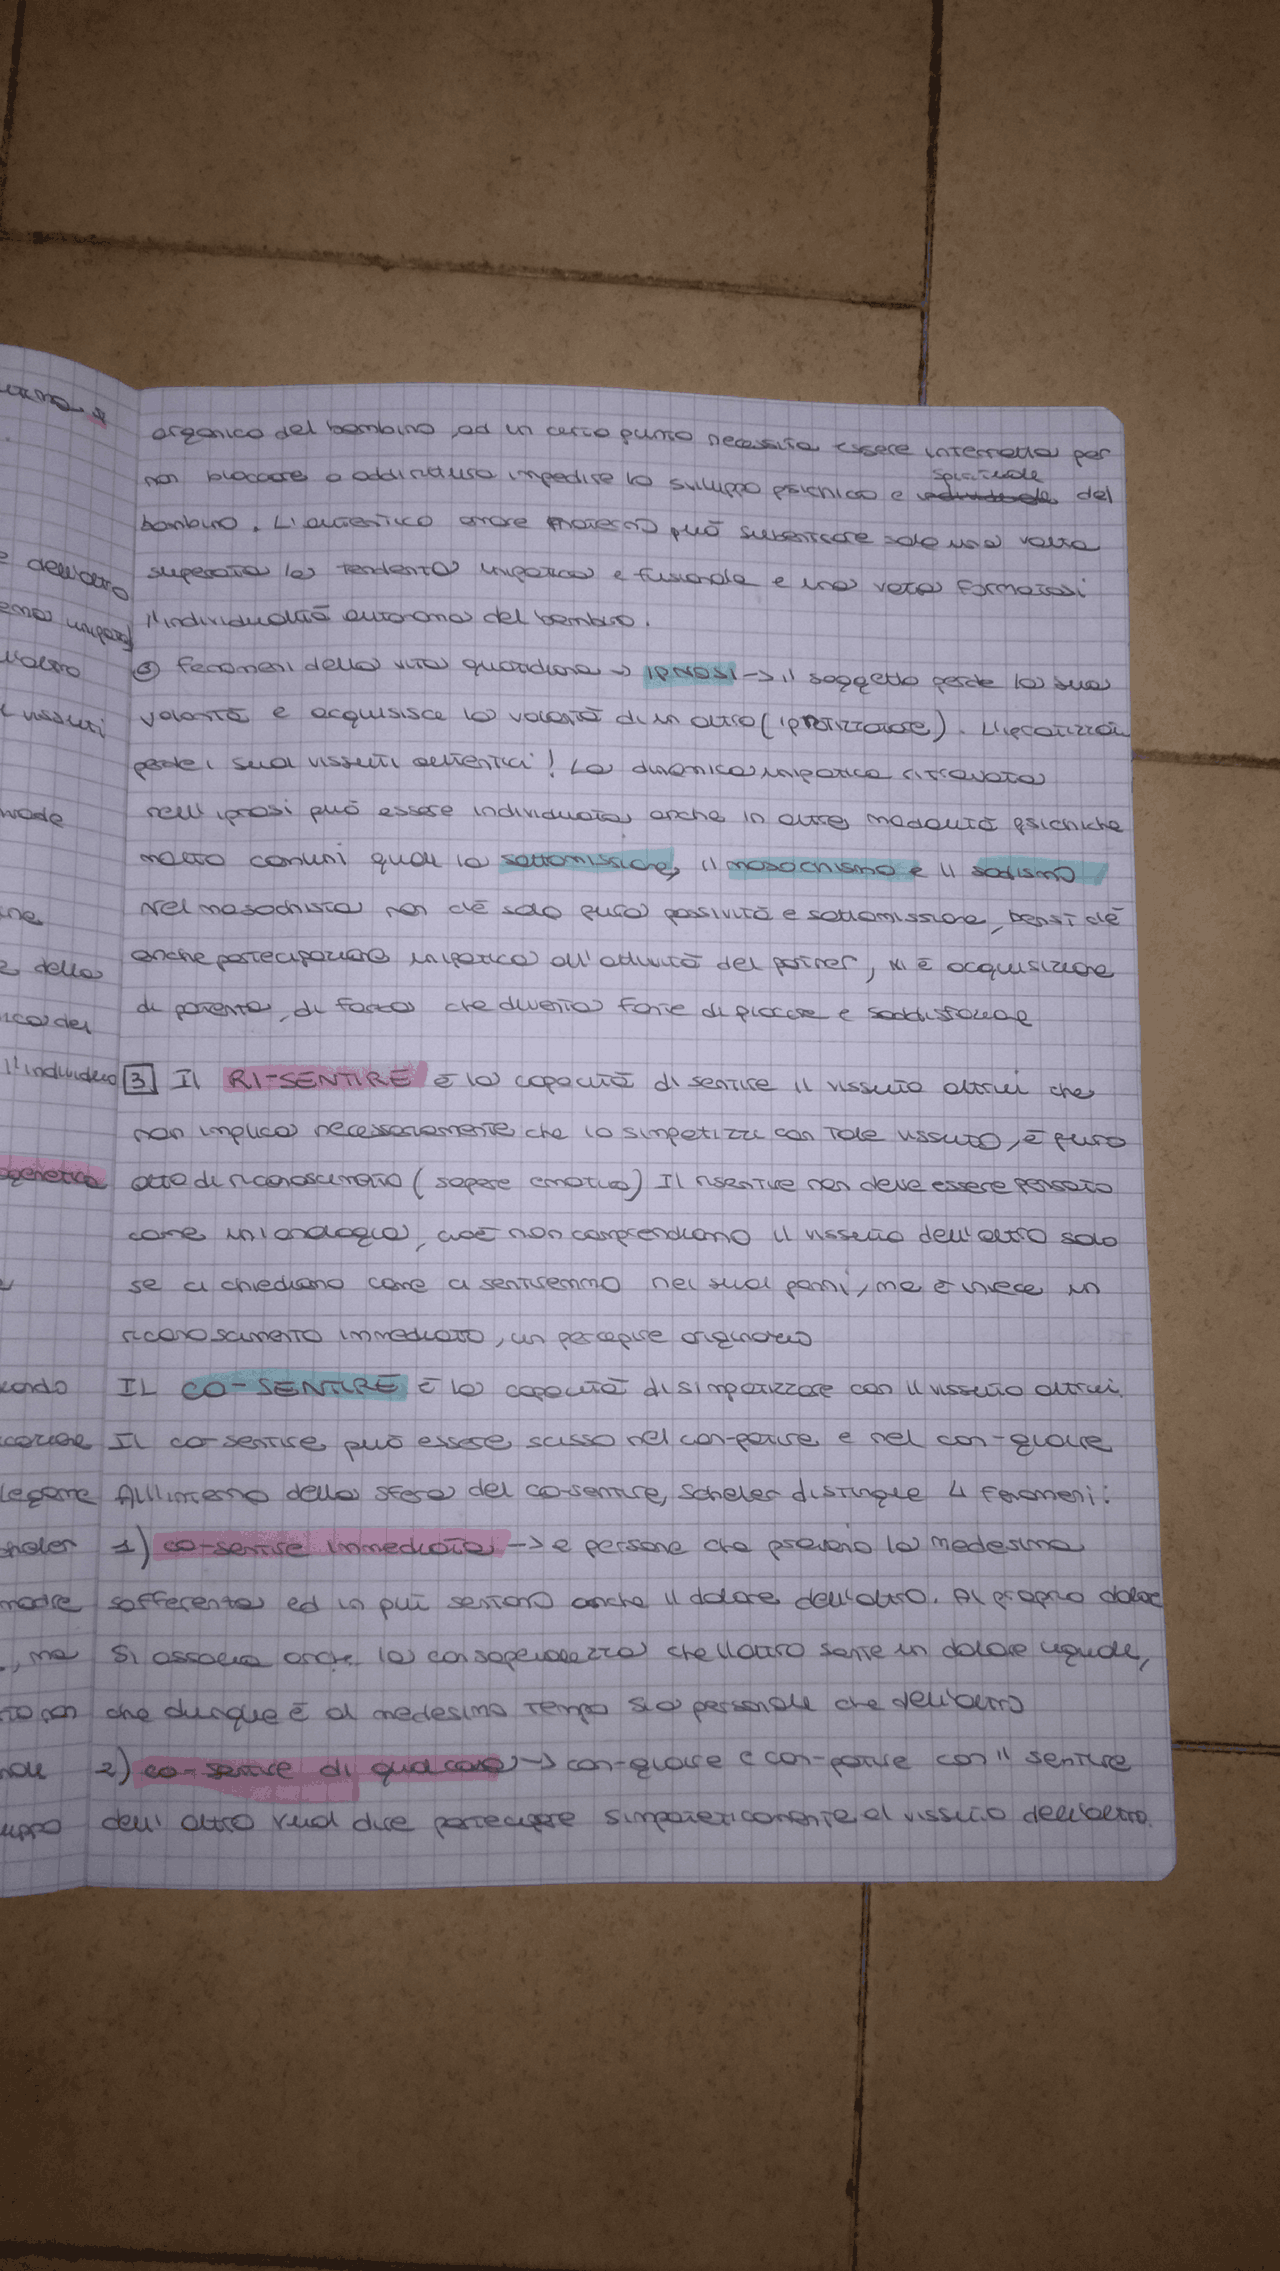 organico del bambino, ad un certo punto necessita essere interrotta per
non bloccare o addirittura impedire lo sviluppo psichico e spirituale del
bambino. L'autentico amore materno può subentrare solo una volta
superata la tendenza unipatica e fusionale e una volta formatasi
l'individualità autonoma del bambino.
③ fenomeni della vita quotidiana → IPNOSI → il soggetto perde la sua
volontà e acquisisce la volontà di un altro (ipnotizzatore). L'ipnotizzato
perde i suoi vissuti autentici! La dinamica unipatica ritrovata
nell'ipnosi può essere individuata anche in altre modalità psichiche
molto comuni quali la sottomissione, il masochismo e il sadismo
Nel masochista non c'è solo pura passività e sottomissione, bensì c'è
anche partecipazione unipatica all'attività del partner, vi è acquisizione
di potenza, di forza che diventa fonte di piacere e soddisfazione
3 Il RI-SENTIRE è la capacità di sentire il vissuto altrui che
non implica necessariamente che io simpatizzi con tale vissuto, è puro
atto di riconoscimento (sapere emotivo) Il risentire non deve essere pensato
come un'analogia, cioè non comprendiamo il vissuto dell'altro solo
se ci chiediamo come ci sentiremmo nei suoi panni, ma è invece un
riconoscimento immediato, un percepire originario
IL CO-SENTIRE è la capacità di simpatizzare con il vissuto altrui.
Il co-sentire può essere scisso nel con-patire e nel con-gioire
All'interno della sfera del co-sentire, Scheler distingue 4 fenomeni:
1) co-sentire immediato → 2 persone che provano la medesima
sofferenza ed in più sentono anche il dolore dell'altro. Al proprio dolore
si associa anche la consapevolezza che l'altro sente un dolore uguale,
che dunque è al medesimo tempo sia personale che dell'altro
2) co-sentire di qualcosa → con-gioire e con-patire con il sentire
dell'altro vuol dire partecipare simpateticamente al vissuto dell'altro.
e dell'altro
l'altro
i vissuti
e della
ica del
l'individuo
ogenetica
legame
madre
, ma